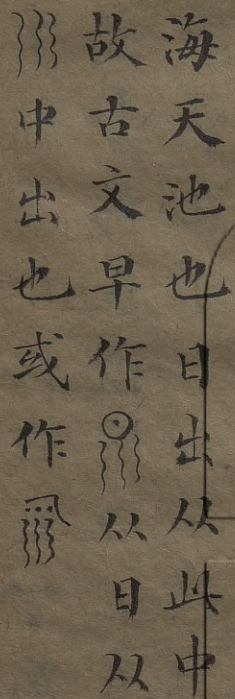 海天池也日出从此中
故古文早作从日从
中出也或作